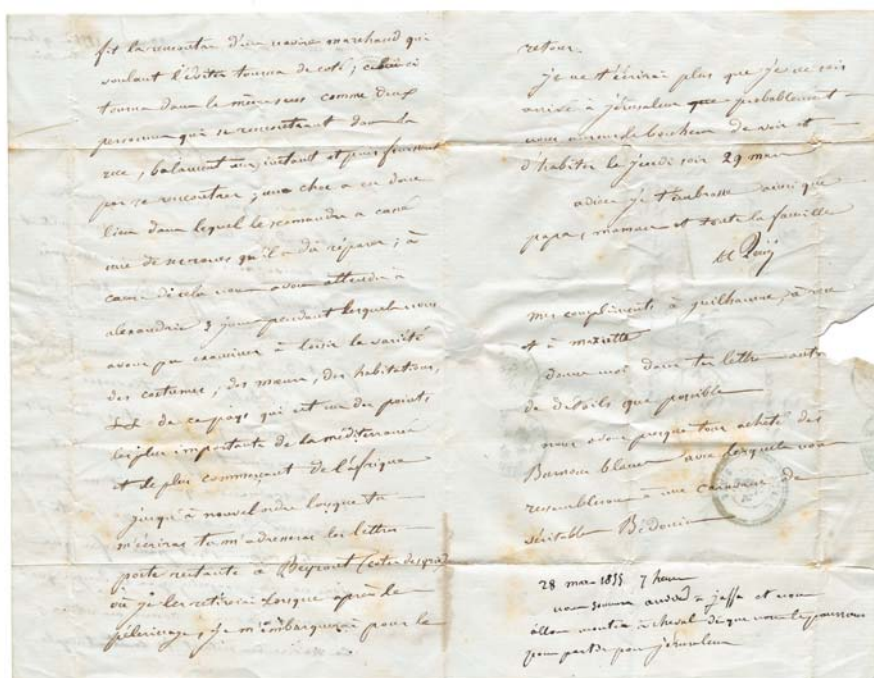 fit la rencontre d'un navire marchand qui
voulant l'éviter tourna de coté; celui ci
tourna dans le même sens comme deux
personnes qui se rencontrant dans la
rue, balancent un instant et puis finissent
par se rencontrer; un choc a eu donc
lieu dans lequel le scamandre a cassé
qu'il a dû réparer; à
cause de cela nous avons attendu à
alexandrie 3 jours pendant lesquels nous
avons pu examiner à loisir la variété
des costumes, des mœurs, des habitations,
de ce pays qui est un des points
les plus importants de la méditerranée
et le plus commerçant de l'afrique
jusqu'à nouvel ordre lorsque tu
m'écriras tu m'adresseras les lettres
poste restante à Beyrout
où je les retirerai lorsque après le
pélerinage, je m'embarquerai pour le
retour.
je ne t'écrirai plus que je ne sois
arrivé à jérusalem que probablement
nous aurons le bonheur de voir et
d'habiter le jeudi soir 29 mars
adieu je t'embrasse ainsi que
papa, maman et toute la famille
mes compliments à guilhaume, à
et à mariette
donne moi dans ta lettre autant
de détails que possible
nous avons presque tous acheté des
Burnous blancs avec lesquels nous
ressemblions à une caravane de
véritables Bédouins
28 mars 1855 7 heures
nous sommes arrivés à jaffa et nous
allons monter à cheval dès que nous le pourrons
pour partir pour jérusalem